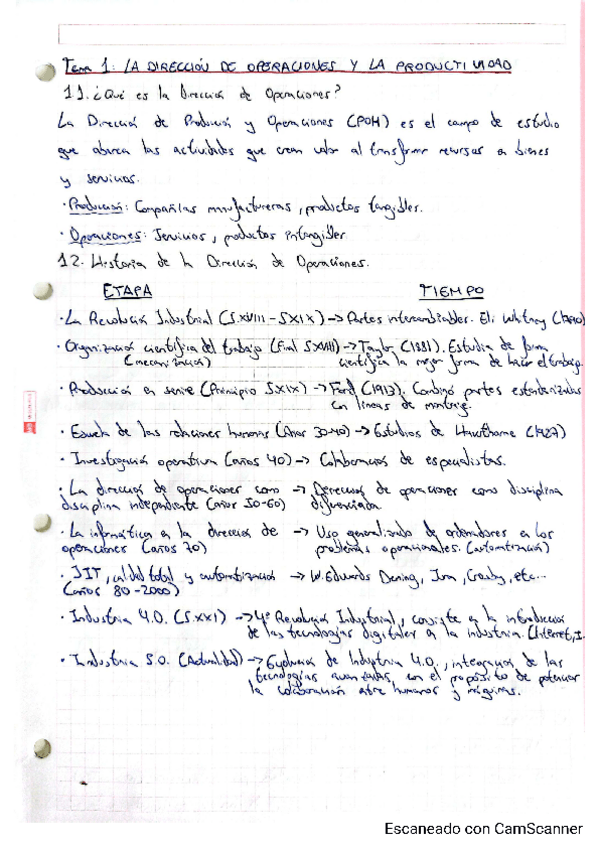 Tema 1: LA DIRECCIÓN DE OPERACIONES Y LA PRODUCTIVIDAD
1.1. ¿Qué es la Dirección de Operaciones?
La Dirección de Producción y Operaciones (POH) es el campo de estudio
que abarca las actividades que crean valor al transformar recursos en bienes
y servicios.
· Producción: Compañías manufactureras, productos tangibles.
· Operaciones: Servicios, productos intangibles.
1.2. Historia de la Dirección de Operaciones.
ETAPA TIEMPO
· La Revolución Industrial (S.XVIII - S.XIX) -> Partes intercambiables. Eli Whitney
· Organización científica del trabajo (Final S.XVIII) -> Taylor (1881). Estudia de forma
(mecanización) científica la mejor forma de hacer el trabajo.
· Producción en serie (Principio S.XIX) -> Ford (1913). Combinó partes estandarizadas
con líneas de montaje.
· Escuela de las relaciones humanas (Años 30-40) -> Estudios de Hawthorne (1927)
· Investigación operativa (años 40) -> Colaboración de especialistas.
· La dirección de operaciones como -> Dirección de operaciones como disciplina
disciplina independiente (años 50-60) diferenciada.
· La informática en la dirección de -> Uso generalizado de ordenadores en los
operaciones (años 70) problemas operacionales. (automatización)
· JIT, calidad total y automatización -> W. Edwards Deming, Juran, Crosby, etc...
(años 80-2000)
· Industria 4.0. (S.XXI) -> 4ª Revolución Industrial, consiste en la introducción
de las tecnologías digitales en la industria. (Internet,
· Industria 5.0. (Actualidad) -> Evolución de Industria 4.0., integración de las
tecnologías avanzadas, con el propósito de potenciar
la colaboración entre humanos y máquinas.
Escaneado con CamScanner